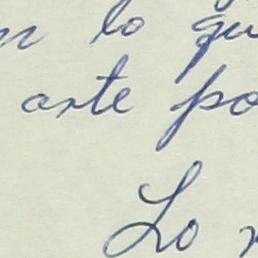 n lo qu
arte po
Lo